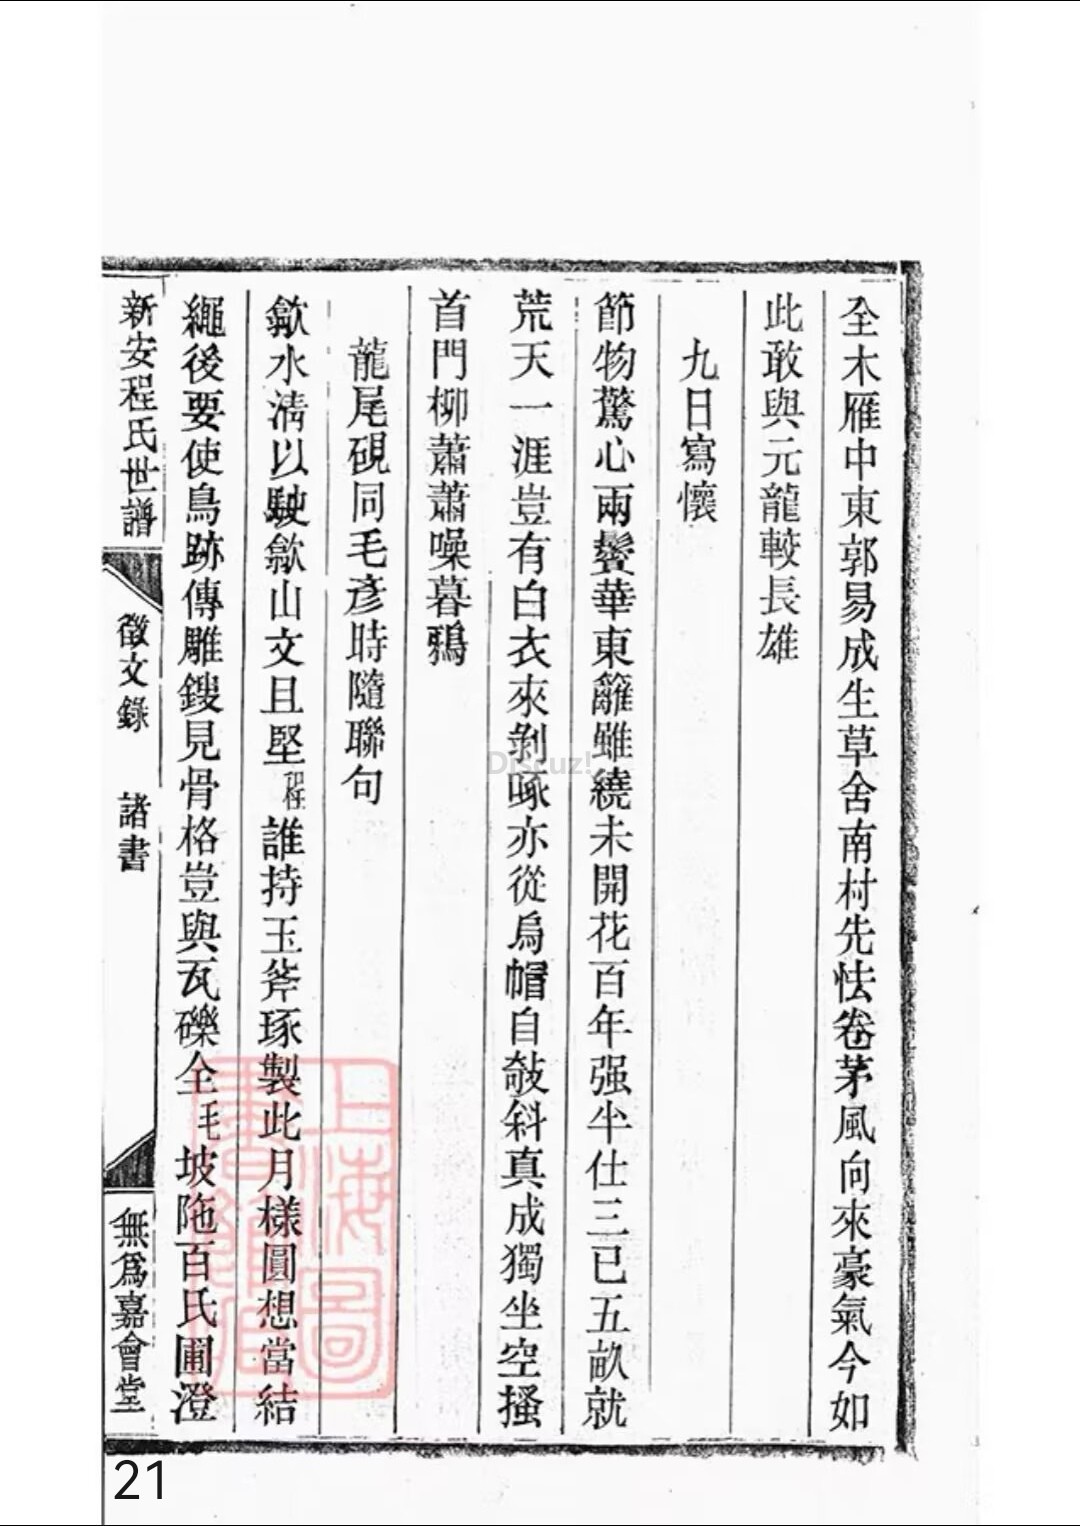 全木雁中東郭易成生草舍南村先怯卷茅風向來豪氣今如
此敢與元龍較長雄
九日寫懷
節物驚心兩鬢華東籬雖繞未開花百年强半仕三已五畝就
荒天一涯豈有白衣來剝啄亦從烏帽自攲斜真成獨坐空搔
首門柳蕭蕭噪暮鴉
龍尾硯同毛彥時隨聯句
歙水淸以駛歙山文且堅程誰持玉斧琢製此月樣圓想當結
繩後要使鳥跡傳雕鎪見骨格豈與瓦礫全毛坡陁百氏圃澄
新安程氏世譜
徵文錄
諸書
無爲嘉會堂
上海圖
書館藏
Discuz!
21